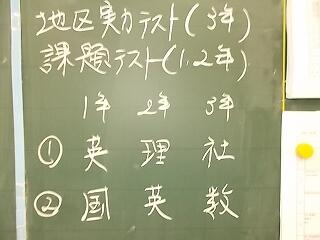 地区実力テスト(3年)
課題テスト(1,2年)
1年 2年 3年
① 英 理 社
② 国 英 数